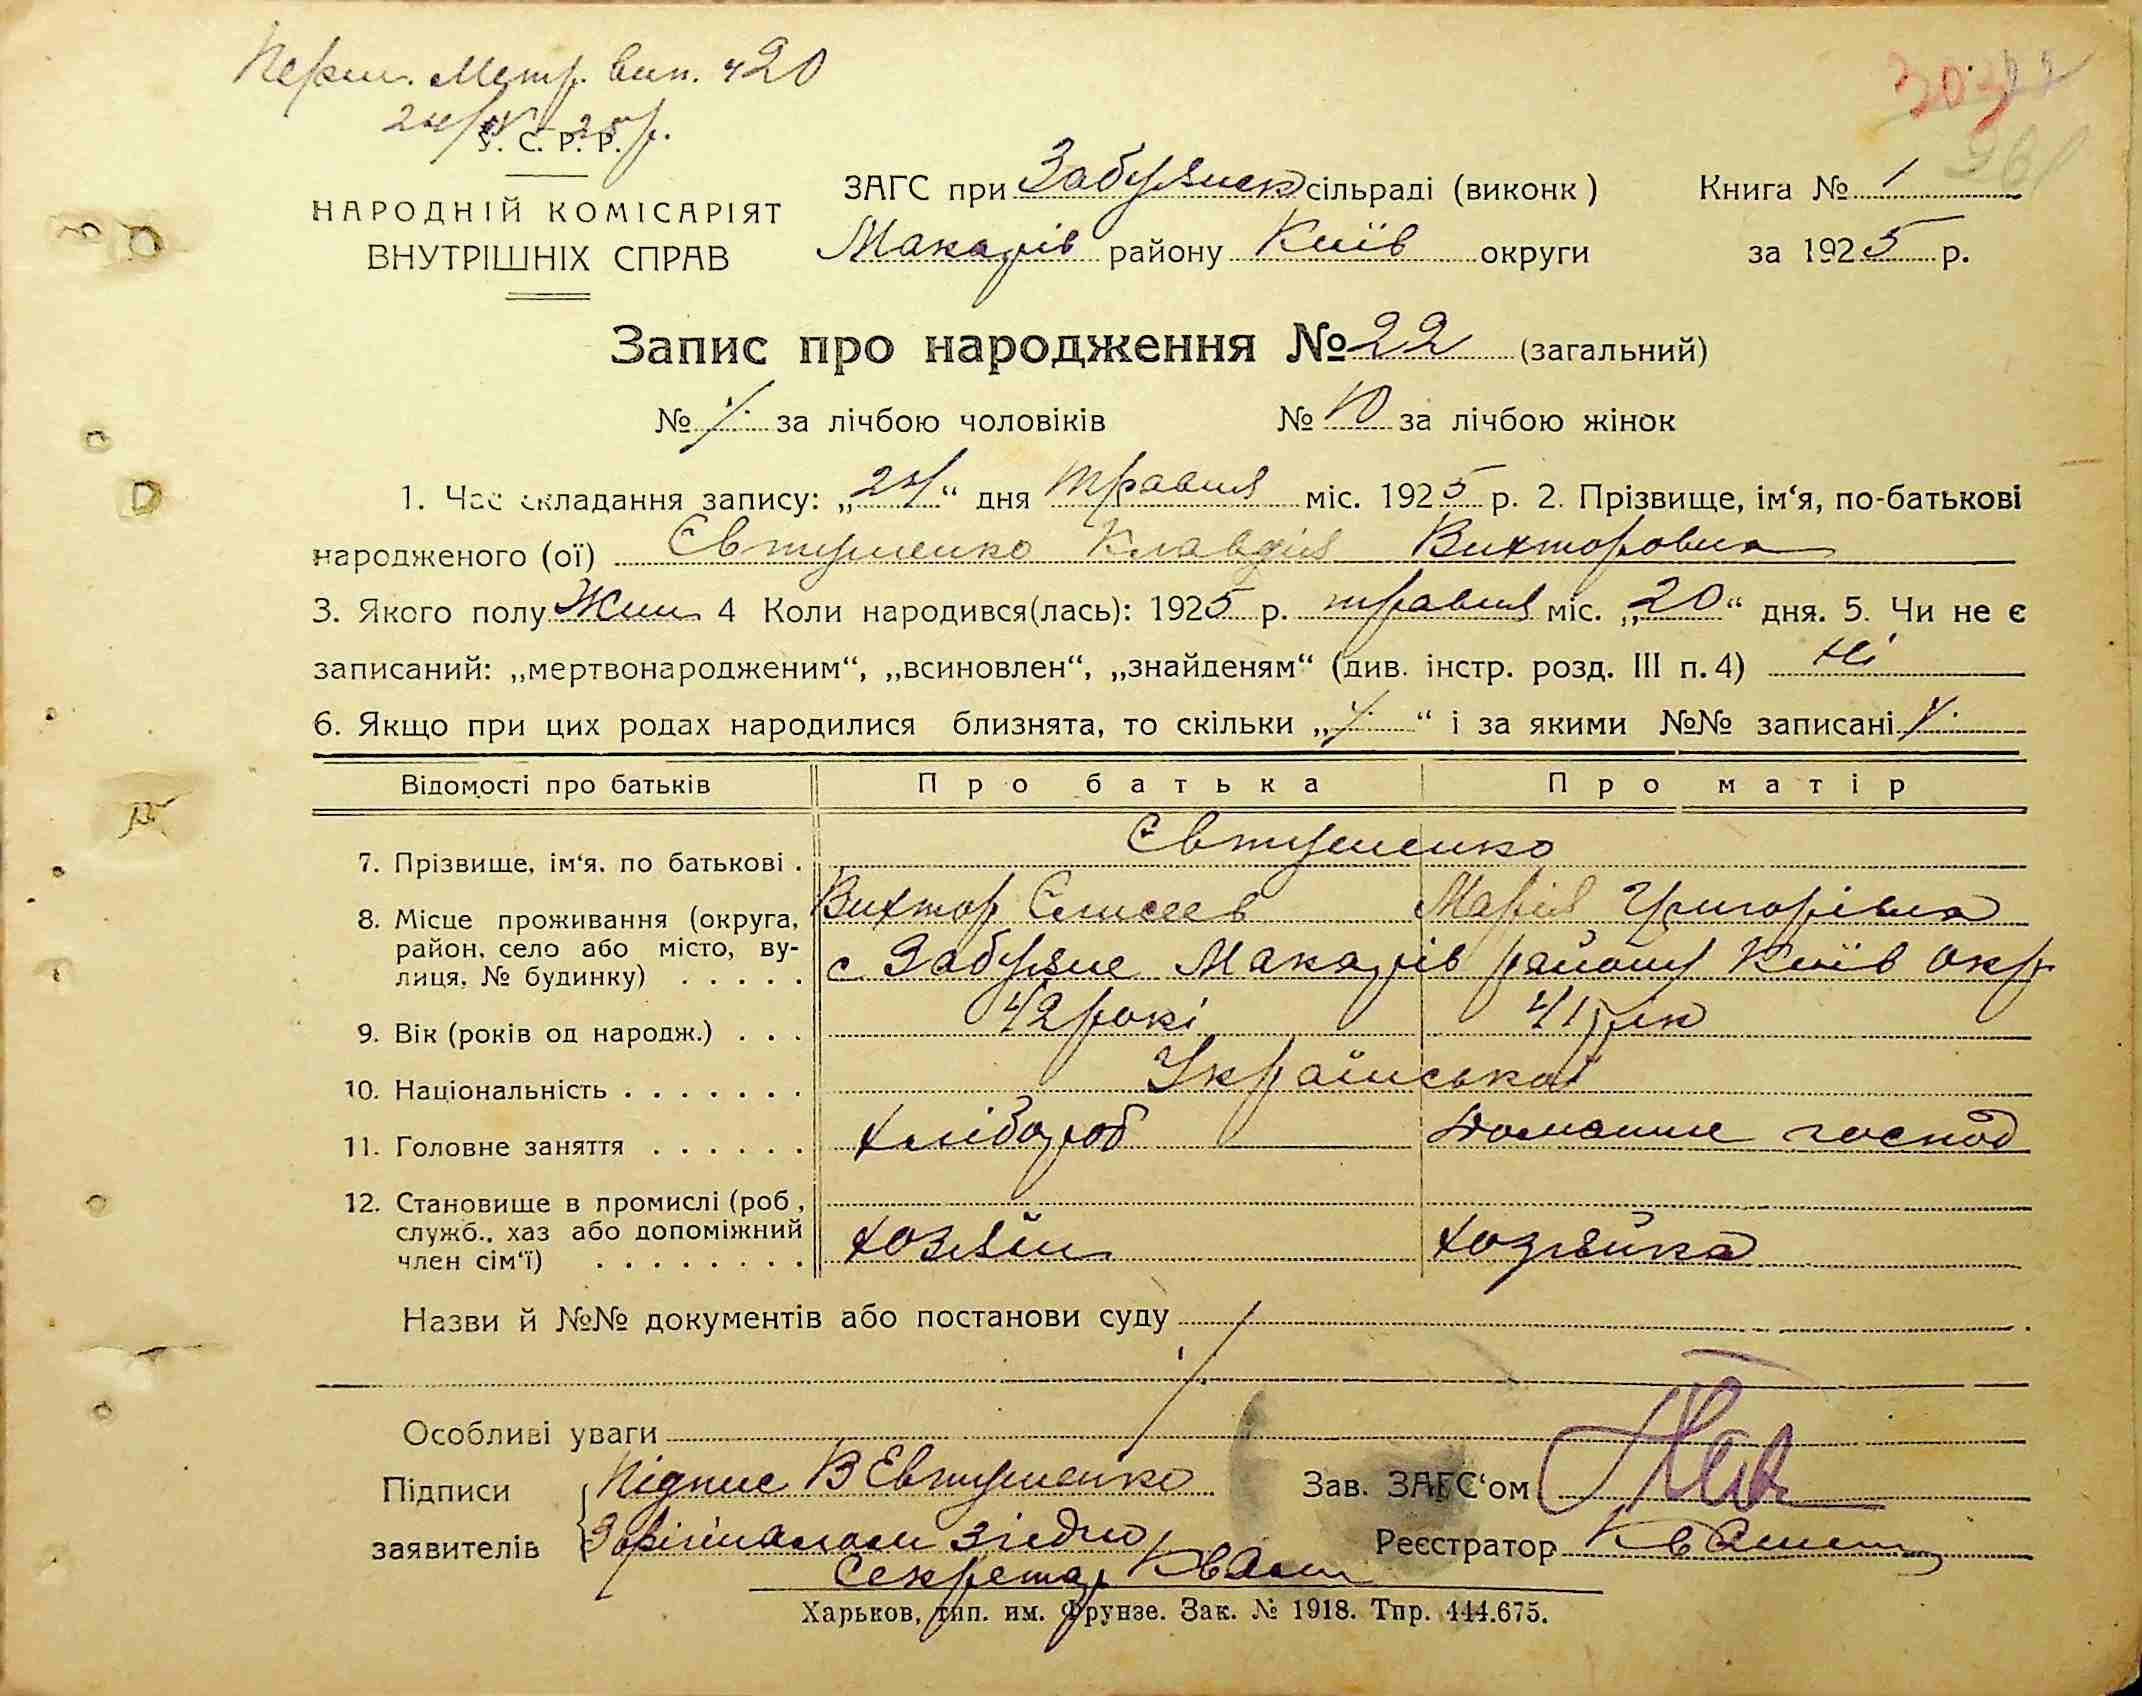 Перш. Метр. вип. ч20
24/V 25р.
У. С. Р. Р.
НАРОДНІЙ КОМІСАРІЯТ
ВНУТРІШНІХ СПРАВ
ЗАГС при Забуянск сільраді (виконк) Книга № 1
Макарів району Київ округи за 1925 р.
Запис про народження № 22 (загальний)
№ ⁒ за лічбою чоловіків № 10 за лічбою жінок
1. Час складання запису: „24“ дня травня міс. 1925 р. 2. Прізвище, ім‘я, по-батькові
народженого (ої) Євтушенко Клавдія Вихторовна
3. Якого полу Жин 4 Коли народився(лась): 1925 р. травня міс. „20“ дня. 5. Чи не є
записаний: „мертвонародженим“, „всиновлен“, „знайденям“ (див. інстр. розд. III п. 4) Ні
6. Якщо при цих родах народилися близнята, то скільки „⁒“ і за якими №№ записані ⁒
Відомості про батьків Про батька Про матір
7. Прізвище, ім‘я, по батькові . Євтушенко
Вихтор Єлисеев Марія Григорівна
8. Місце проживання (округа,
район, село або місто, ву-
лиця, № будинку) . . . . . с Забуяне Макарів району Київ окр
9. Вік (років од народж.) . . . 42 рокі 41 рік
10. Національність . . . . . . . Українська
11. Головне заняття . . . . . . хлібороб домашне господ
12. Становище в промислі (роб,
служб., хаз або допоміжний
член сім‘ї) . . . . . . . . хозяїн хозяйка
Назви й №№ документів або постанови суду
Особливі уваги
Підписи Підпис В Евтушенко Зав. ЗАГС‘ом
заявителів З орігіналом згідно Реєстратор Кваш
Секретар Кваш
Харьков, тип. им. Фрунзе. Зак. № 1918. Тпр. 444.675.